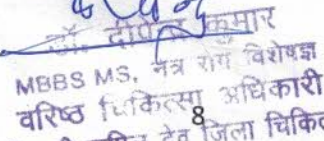 डॉ. दीपेन्द्र कुमार
MBBS MS, नेत्र रोग विशेषज्ञ
वरिष्ठ चिकित्सा अधिकारी
8
देव जिला चिकित